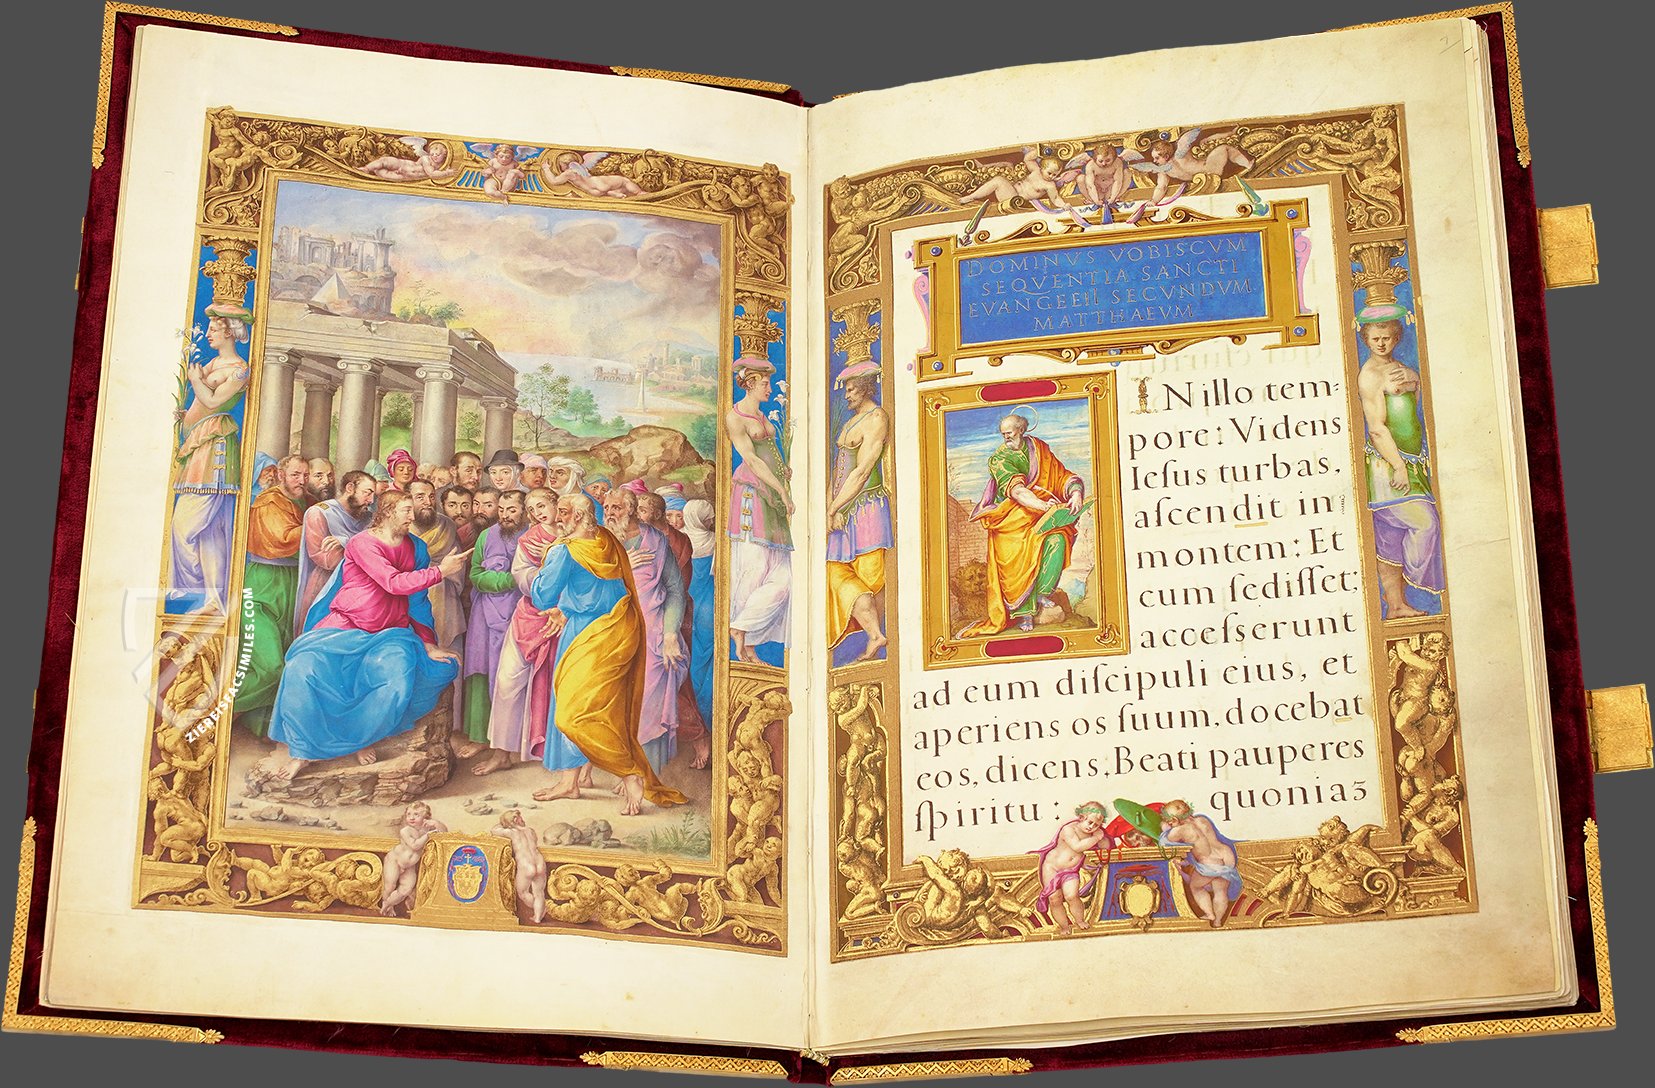 ZIEREISFACSIMILES.COM
DOMINVS VOBISCVM
SEQVENTIA SANCTI
EVANGEEII SECVNDVM
MATTHAEVM
INillo tem-
pore: Videns
Iesus turbas,
aſcendit in
montem: Et
cum ſediſſet;
acceſserunt
ad eum diſcipuli eius, et
aperiens os ſuum, docebat
eos, dicens, Beati pauperes
ſpiritu: quoniaʒ